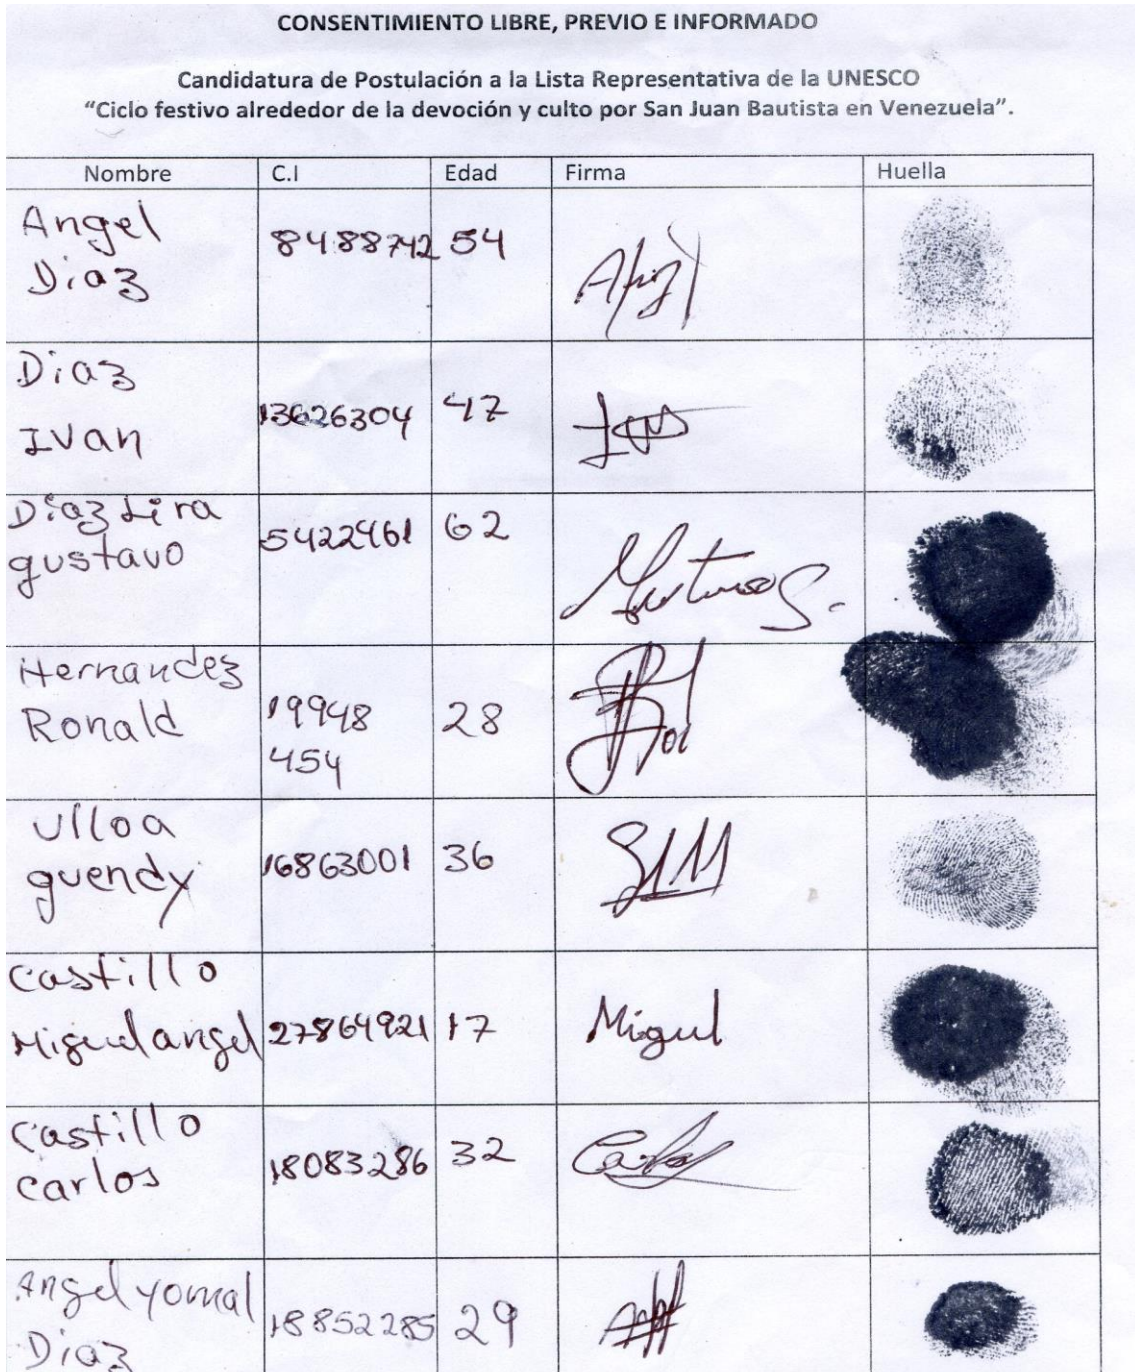 CONSENTIMIENTO LIBRE, PREVIO E INFORMADO
Candidatura de Postulación a la Lista Representativa de la UNESCO
"Ciclo festivo alrededor de la devoción y culto por San Juan Bautista en Venezuela".
Nombre C.I Edad Firma Huella
Angel
Diaz
8488742 54
Diaz
Ivan
13626304 47
Diaz Lira
gustavo
5422461 62
Hernandez
Ronald
19948
454
28
Ulloa
guendy
16863001 36
Castillo
Miguel angel
27864921 17 Migul
Castillo
Carlos
18083286 32
Angel yomal
Diaz
18852285 29